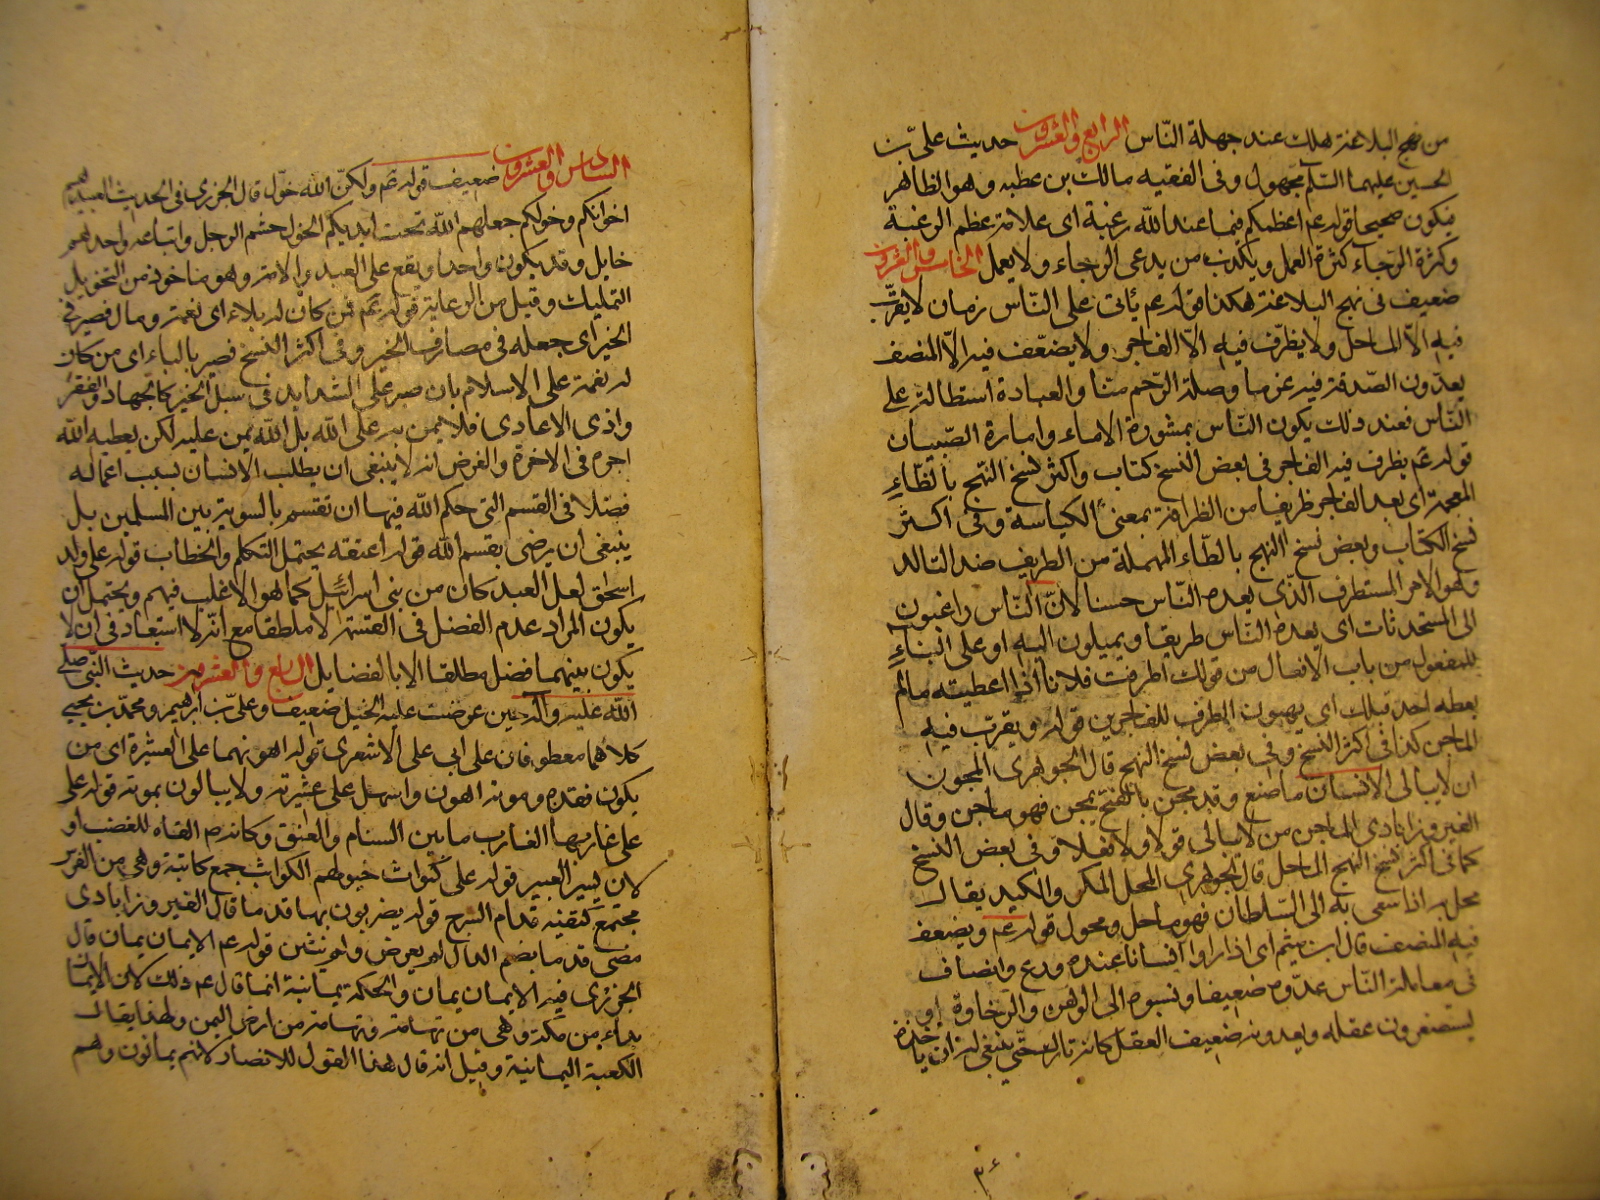 من نهج البلاغة هلك عند جهلة النّاس الرابع والعشرون حديث علي بن
الحسين عليهما السّلم مجهول وفى الفقيه مالك بن عطيه وهو الظاهر
فيكون صحيحا قوله عم اعظمكم فيما عند الله رغبة اى علامة عظم الرغبة
وكثرة الرّجاء كثرة العمل ويكذب من يدعى الرجاء ولا يعمل الخامس والعشرون
ضعيف فى نهج البلاغة هكذا قوله عم يأتى على النّاس زمان لا يقرّب
فيه الاّ الماحل ولا يظرّف فيه الاّ الفاجر ولا يضعّف فيه الاّ المنصف
يعدّون الصّدقة فيه غرما وصلة الرّحم منّا والعبادة استطالة على
النّاس فعند ذلك يكون النّاس بمشورة الاماء وامارة الصّبيان
قوله عم يظرف فيه الفاجر فى بعض النسخ كتاب واكثر نسخ النهج بالظّاء
المعجمة اى يعد الفاجر ظريفا من الظرافة بمعنى الكياسة وفى اكثر
نسخ الكتاب وبعض نسخ النهج بالطّاء المهملة من الطريف ضد التالد
وهو الامر المستطرف الذّى يعده النّاس حسنا لانّ النّاس راغبون
الى المستحدثات اى يعده النّاس طريفا ويميلون اليه او على البناء
للمفعول من باب الافعال من قولك اطرفت فلانا اذا اعطيته مالم
يعطه احد قبلك اى يهبون الطرف للفاجرين قوله ويقرّب فيه
الماجن كذا فى اكثر النسخ وفى بعض نسخ النهج قال الجوهرى المجون
ان لا يبالى الانسان ما صنع وقد مجن بالفتح يمجن فهو ماجن وقال
الفيروزابادى الماجن من لا يبالى قولا ولا فعلا وفى بعض النسخ
كما فى اكثر نسخ النهج الماحل قال الجوهرى المحل المكر والكيد يقال
محل به اذا سعى به الى السّلطان فهو ماحل ومحول قوله عم ويضعف
فيه المنصف قال ابن ميثم اى اذا راوا انسانا عنده ورع وانصاف
فى معاملة النّاس عدّوه ضعيفا ونسبوه الى الوهن والرّخاوة او
يستصغرون عقله ويعدونه ضعيف العقل كانه تارك حقّ ينبغى له ان ياخذه
السادس والعشرون ضعيف قوله عم ولكنّ الله خوّل قال الجزرى فى الحديث العبيد هم
اخوانكم وخولكم جعلهم الله تحت ايديكم الخول حشم الرجل واتباعه واحدهم
خايل وقد يكون واحدا ويقع على العبد والامة وهو ماخوذ من التخويل
التمليك وقيل من الرعاية قوله عم فمن كان له بلاء اى نعمة ومال فصير فى
الخير اى جعله فى مصارف الخير وفى اكثر النسخ فصبر بالباء اى من كان
له نعمة على الاسلام بان صبر على الشدايد فى سبل الخير كالجهاد والفقر
واذى الاعادى فلا يمن به على الله بل الله يمن عليه لكن يعطيه الله
اجره فى الاخرة والغرض انه لا ينبغى ان يطلب الانسان بسبب اعماله
فضلا فى القسم التى حكم الله فيها ان تقسم بالسوية بين المسلمين بل
ينبغى ان يرضى بقسم الله قوله اعتقه يحتمل التكلم والخطاب قوله على ولد
اسحق لعل العبد كان من بنى اسرائيل كما هو الاغلب فيهم ويحتمل ان
يكون المراد عدم الفضل فى القسمة لا مطلقا مع انّه لا استبعاد فى ان لا
يكون بينهما فضل مطلقا الا بالفضايل السابع والعشرون حديث النّبى صلى
الله عليه واله حين عرضت عليه الخيل ضعيف وعلى بن ابرهيم ومحمّد بن يحيى
كلاهما معطوفان على ابى على الاشعرى قوله اهونهما على العشيرة اى من
يكون فقده وموته اهون واسهل على عشيرته ولا يبالون بموته قوله على
على غاربها الغارب ما بين السنام والعنق وكانه القاه للغضب او
لان يسير البعير قوله على كواثب خيولهم الكواثب جمع كاثبة وهى من الفرس
مجتمع كتفيه قدام السرج قوله يضربون بها قدما قال الفيروزابادى
مضى قدما بضم الدال لم يعرض ولم ينثن قوله عم الايمان يمان قال
الجزرى فيه الايمان يمان والحكمة يمانية انما قال عم ذلك لان الايمان
بداء من مكة وهى من تهامة وتهامة من ارض اليمن ولهذا يقال
الكعبة اليمانية وقيل انه قال هذا القول للانصار لانهم يمانون وهم